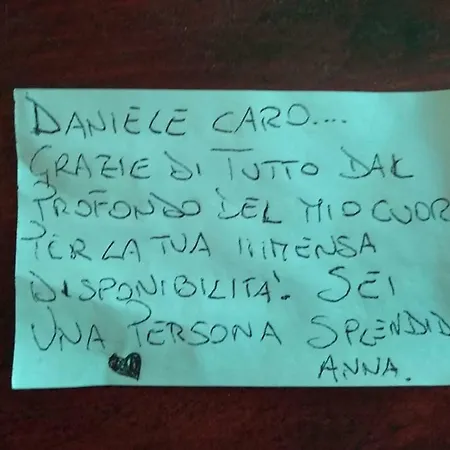 DANIELE CARO....
GRAZIE DI TUTTO DAL
PROFONDO DEL MIO CUOR
PER LA TUA IMMENSA
DISPONIBILITA'. SEI
UNA PERSONA SPLENDID
ANNA.